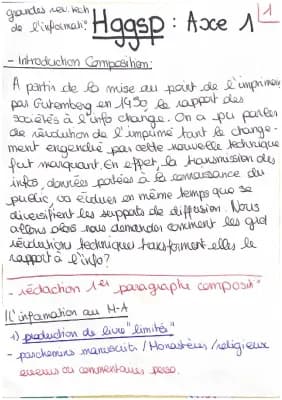 grandes rév. tech
de l'informat° Hggsp : Axe 1
1
- Introduction Composition:
A partir de la mise au point de l'imprimerie
par Gutemberg en 1450, le rapport des
sociétés à l'info change. On a pu parler
de révolution de l'imprimé tant le change-
ment engendré par cette nouvelle technique
fut marquant. En effet, la transmission des
infos, données portées à la connaissance du
public, va évoluer en même temps que se
diversifient les supports de diffusion. Nous
allons alors nous demander comment les grd
révolutions techniques transforment elles le
rapport à l'info?
- rédaction 1er paragraphe composit°
I L'information au M-A
1) production de livre "limités"
- parchemins manuscrits / Monastères / religieux
erreurs ou commentaires perso.